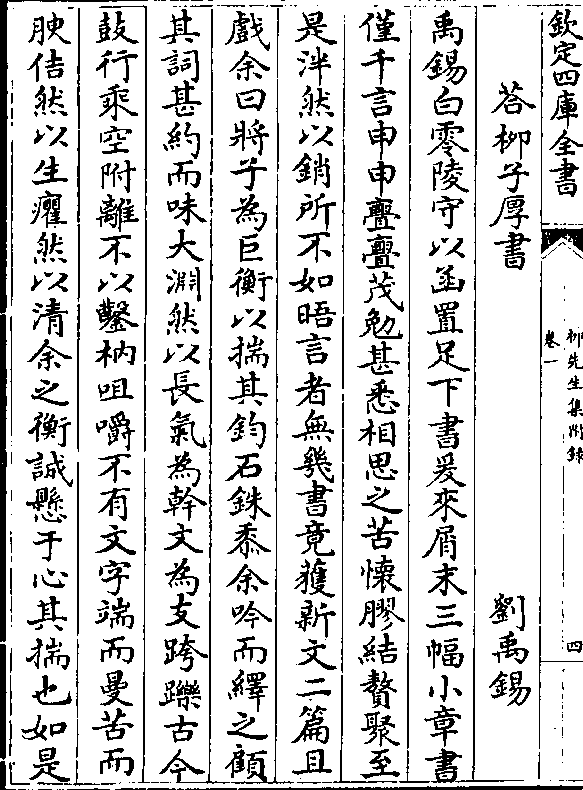 欽定四庫全書
柳先生集附錄
卷一
四
荅柳子厚書
劉禹錫
禹錫白零陵守以函置足下書爰來屑末三幅小章書
僅千言申申亹亹茂勉甚悉相思之苦懷膠結贅聚至
是泮然以銷所不如晤言者無幾書竟獲新文二篇且
戲余曰將子為巨衡以揣其鈞石銖黍余吟而繹之顧
其詞甚約而味大淵然以長氣為幹文為支跨躒古今
鼓行乘空附離不以鑿枘咀嚼不有文字端而曼苦而
腴佶然以生癯然以清余之衡誠懸于心其揣也如是